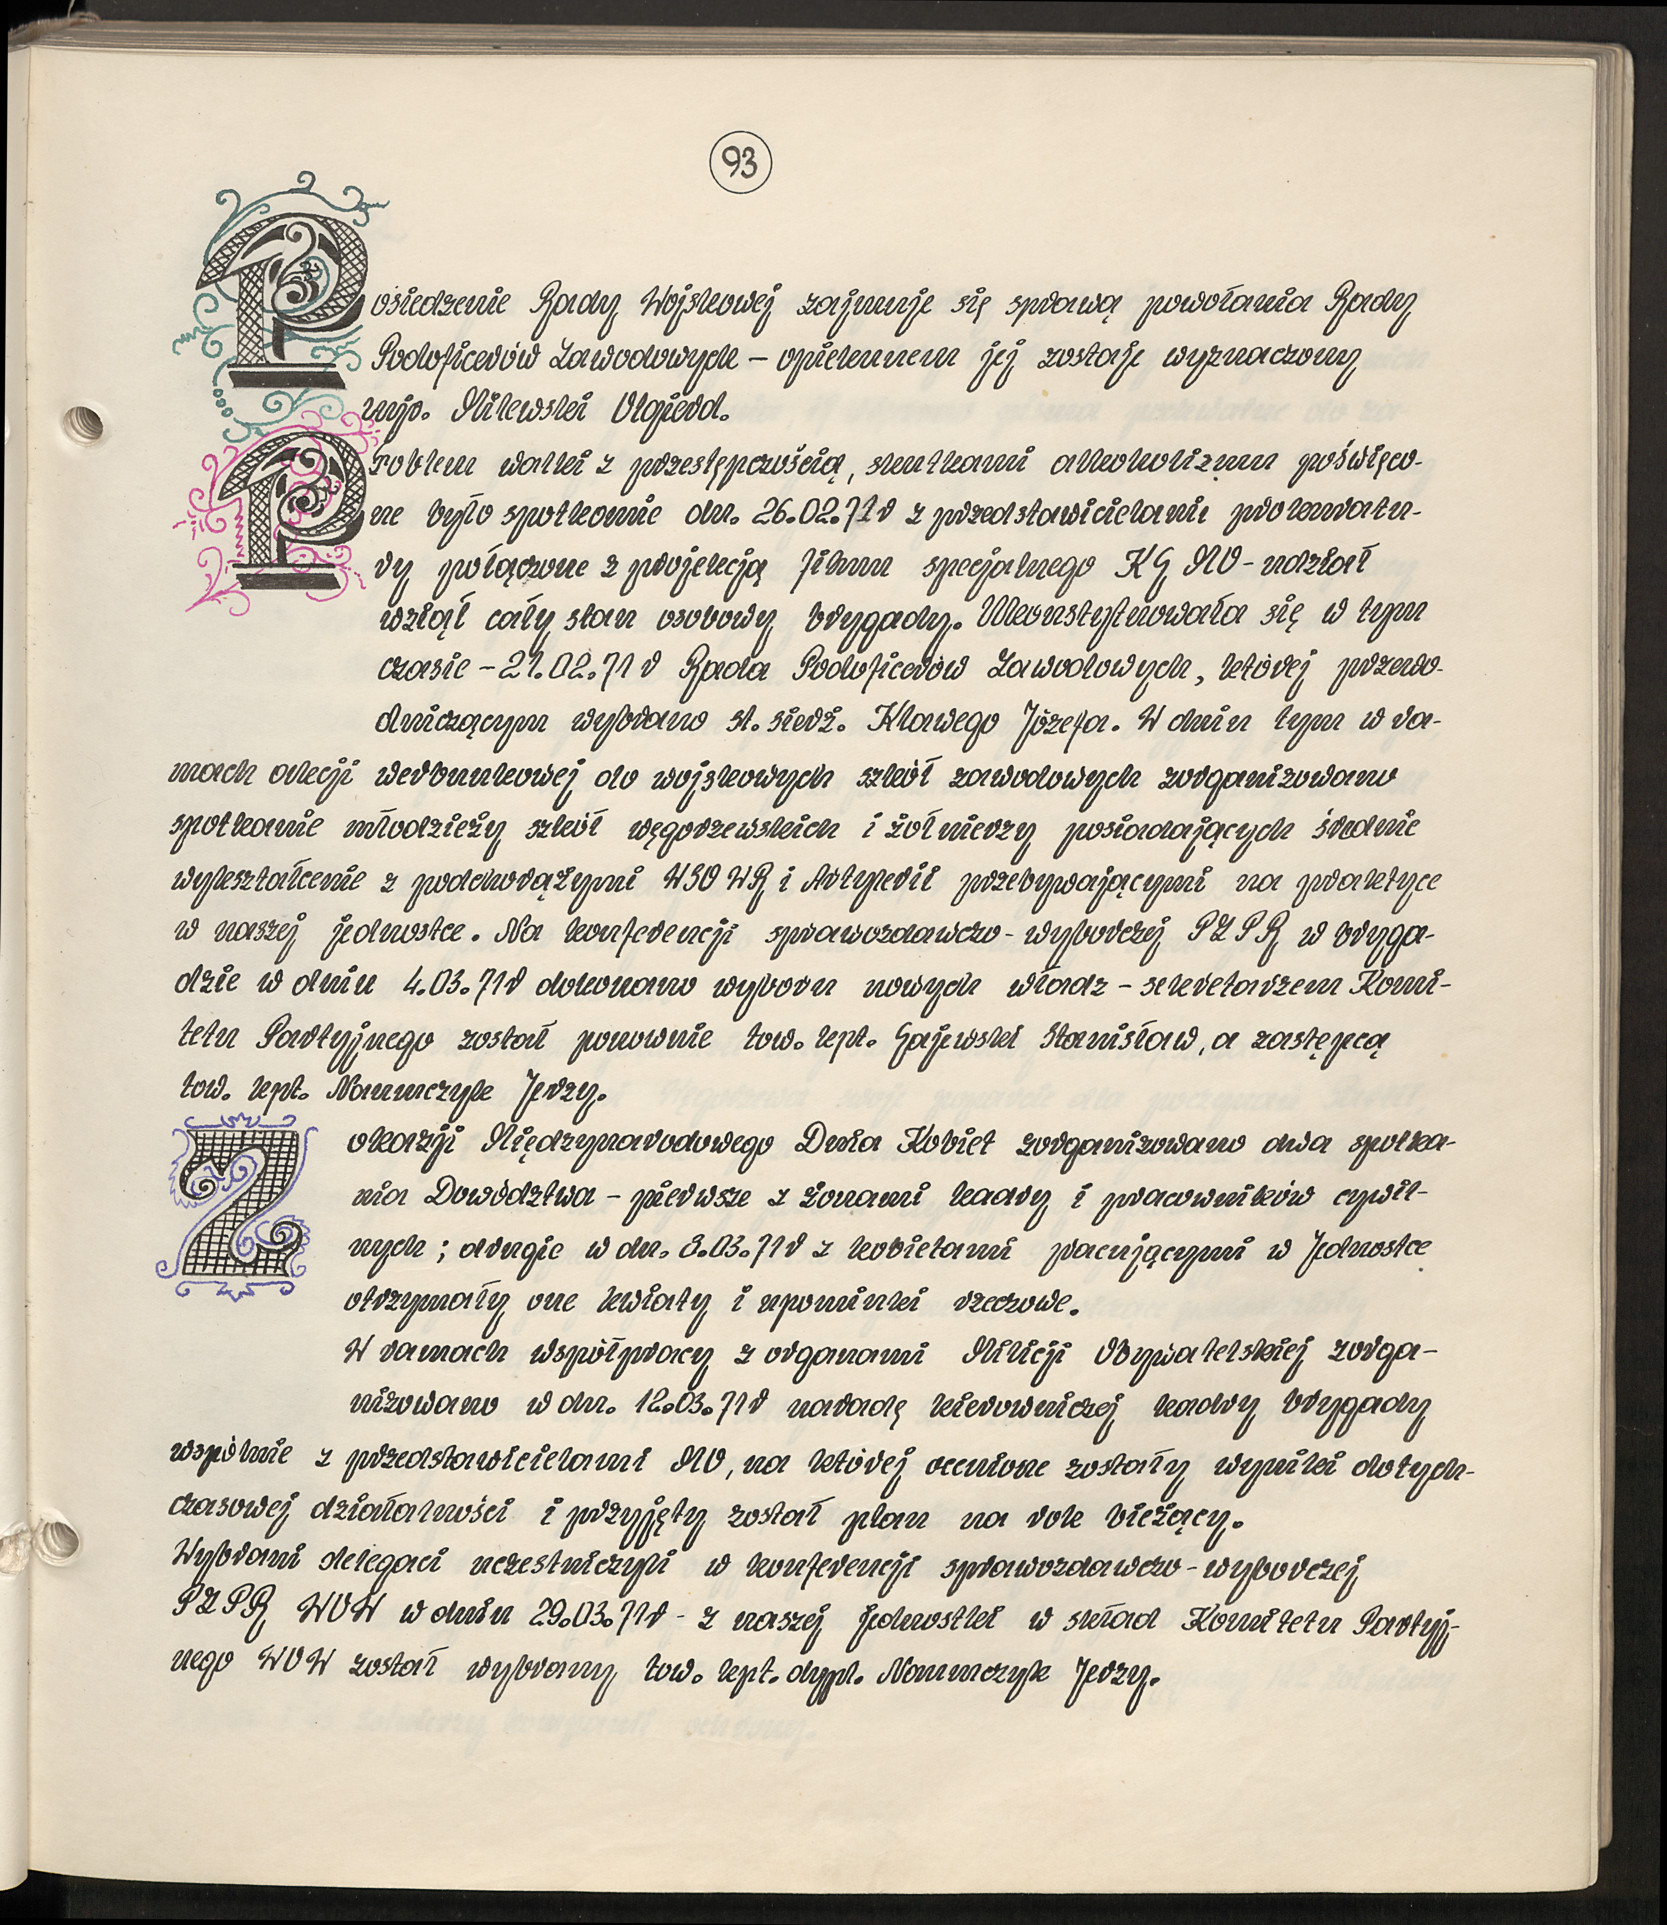 93
Posiedzenie Rady Wojskowej zajmuje się sprawą powołania Rady
Podoficerów Zawodowych – opiekunem jej zostaje wyznaczony
mjr. Milewski Olgierd.
Problem walki z przestępczością, skutkami alkoholizmu poświęco-
ne było spotkanie dn. 26.02.71r z przedstawicielami prokuratu-
ry połączone z projekcją filmu specjalnego KG MO - udział
wziął cały stan osobowy brygady. Ukonstytuowała się w tym
czasie – 27.02.71 r Rada Podoficerów Zawodowych, której przewo-
dniczącym wybrano st. sierż. Klawego Józefa. W dniu tym w ra-
mach akcji werbunkowej do wojskowych szkół zawodowych zorganizowano
spotkanie młodzieży szkół węgorzewskich i żołnierzy posiadających średnie
wykształcenie z podchorążymi WSO WR i Artylerii przebywającymi na praktyce
w naszej jednostce. Na konferencji sprawozdawczo - wyborczej PZPR w bryga-
dzie w dniu 4.03.71r dokonano wyboru nowych władz – sekretarzem Komi-
tetu Partyjnego został ponownie tow. kpt. Gajewski Stanisław, a zastępcą
tow. kpt. Naumczyk Jerzy.
Z okazji Międzynarodowego Dnia Kobiet zorganizowano dwa spotka-
nia Dowództwa – pierwsze z żonami kadry i pracowników cywil-
nych ; drugie w dn. 8.03.71r z kobietami pracującymi w Jednostce
otrzymały one kwiaty i upominki rzeczowe.
W ramach współpracy z organami Milicji Obywatelskiej zorga-
nizowano w dn. 12.03.71r naradę kierowniczej kadry brygady
wspólnie z przedstawicielami MO, na której ocenione zostały wyniki dotych-
czasowej działalności i przyjęty został plan na rok bieżący.
Wybrani delegaci uczestniczyli w konferencji sprawozdawczo - wyborczej
PZPR WOW w dniu 29.03.71r - z naszej jednostki w skład Komitetu Partyj-
nego WOW został wybrany tow. kpt. dypl. Naumczyk Jerzy.